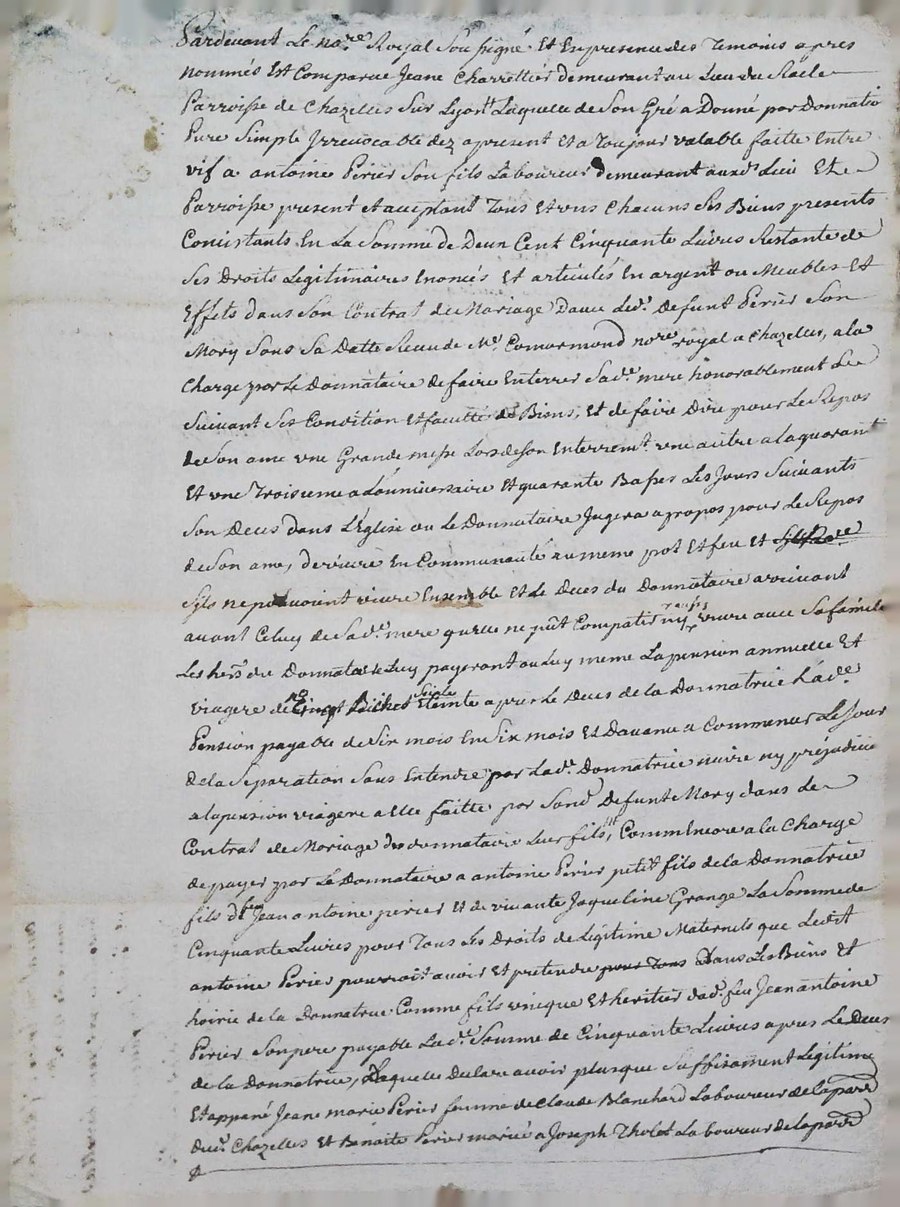 Pardevant Le no.re Royal Sousigné Et En presence des Temoins apres
nommés Est Comparue Jeane Charrettier demeurant au Lieu du
Parroisse de Chazelles Sur Lyont Laquelle de Son Gré a Donné par Donnatio
Pure Simple Irrevocable dez apresent Et a Toujour valable faitte Entre
vif a antoine Perier Son fils Laboureur demeurant auxd.s Lieu Et
Parroisse present et acceptant Tous Et uns Chacuns Ses Biens presents
Concistants En La Somme de Deux Cent Cinquante Livres Restante de
Ses Droits Legitimaires Enoncés Et articulés En argent ou Meubles Et
Effets dans Son Contrat de Mariage Davec Led.t defunt Perier Son
Mary Sous Sa Datte Receu de Me. Comarmond nore royal a Chazelles, a la
Charge par Le Donnataire de faire Enterrer Sad.e mere honorablement
Suivant Ses Condition Et faculté de Biens, Et de faire Dire pour Le Repos
de Son ame une Grande messe Lors de Son Enterremt. une autre a la quarant
Et une Troisieme a Lanniversaire Et quarante Basses Les Jours Suivants
Son Deces dans L'Eglise ou Le Donnataire Jugera apropos pour Le Repos
de Son ame, de vivre En Communauté au meme pot Et feu Et
Sils ne pouvoint vivre Ensemble Et Le Deces du Donnataire arrivant
avant Celuy de Sad.e mere qu'elle ne pût Compatir ny vivre avec Sa famille
Les hers. du Donnatai ou Luy meme La pension annuelle Et
viagere de Eteinte apres Le Deces de la Donnatrice Lad.e
Pension payable de Six mois En Six mois Et Davance a Commencer Le Jour
de la Separation Sans Entendre par Lad.e Donnatrice nuire ny préjudicie
a la pension viagere a Elle faitte par Sond.t defunt Mary dans Le
Contrat de Mariage du donnataire Leur fils, Comm Encore a la Charge
de payer par Le Donnataire a antoine Perier petit fils de la Donnatrice
fils de feu Jean antoine perier Et de vivante Jaqueline Grange La Somme de
Cinquante Livres pour Tous Les Droits de Légitime Maternels que Ledit
antoine Perier pourroit avoir Et pretendre pour Tous Dans Les Biens Et
hoirie de la Donnatrice Comme fils unique Et heritier dud. feu Jean antoine
Perier Son pere payable Lad.e Somme de Cinquante Livres apres Le Deces
de la Donnatrice, Laquelle Declare avoir plusque Suffisament Légitimé
Et appané Jeane marie Perier femme de Claude Blanchard Laboureur de la parr
dud.t Chazelles Et Benoite Perier mariée a Joseph Tholet Laboureur de la parr